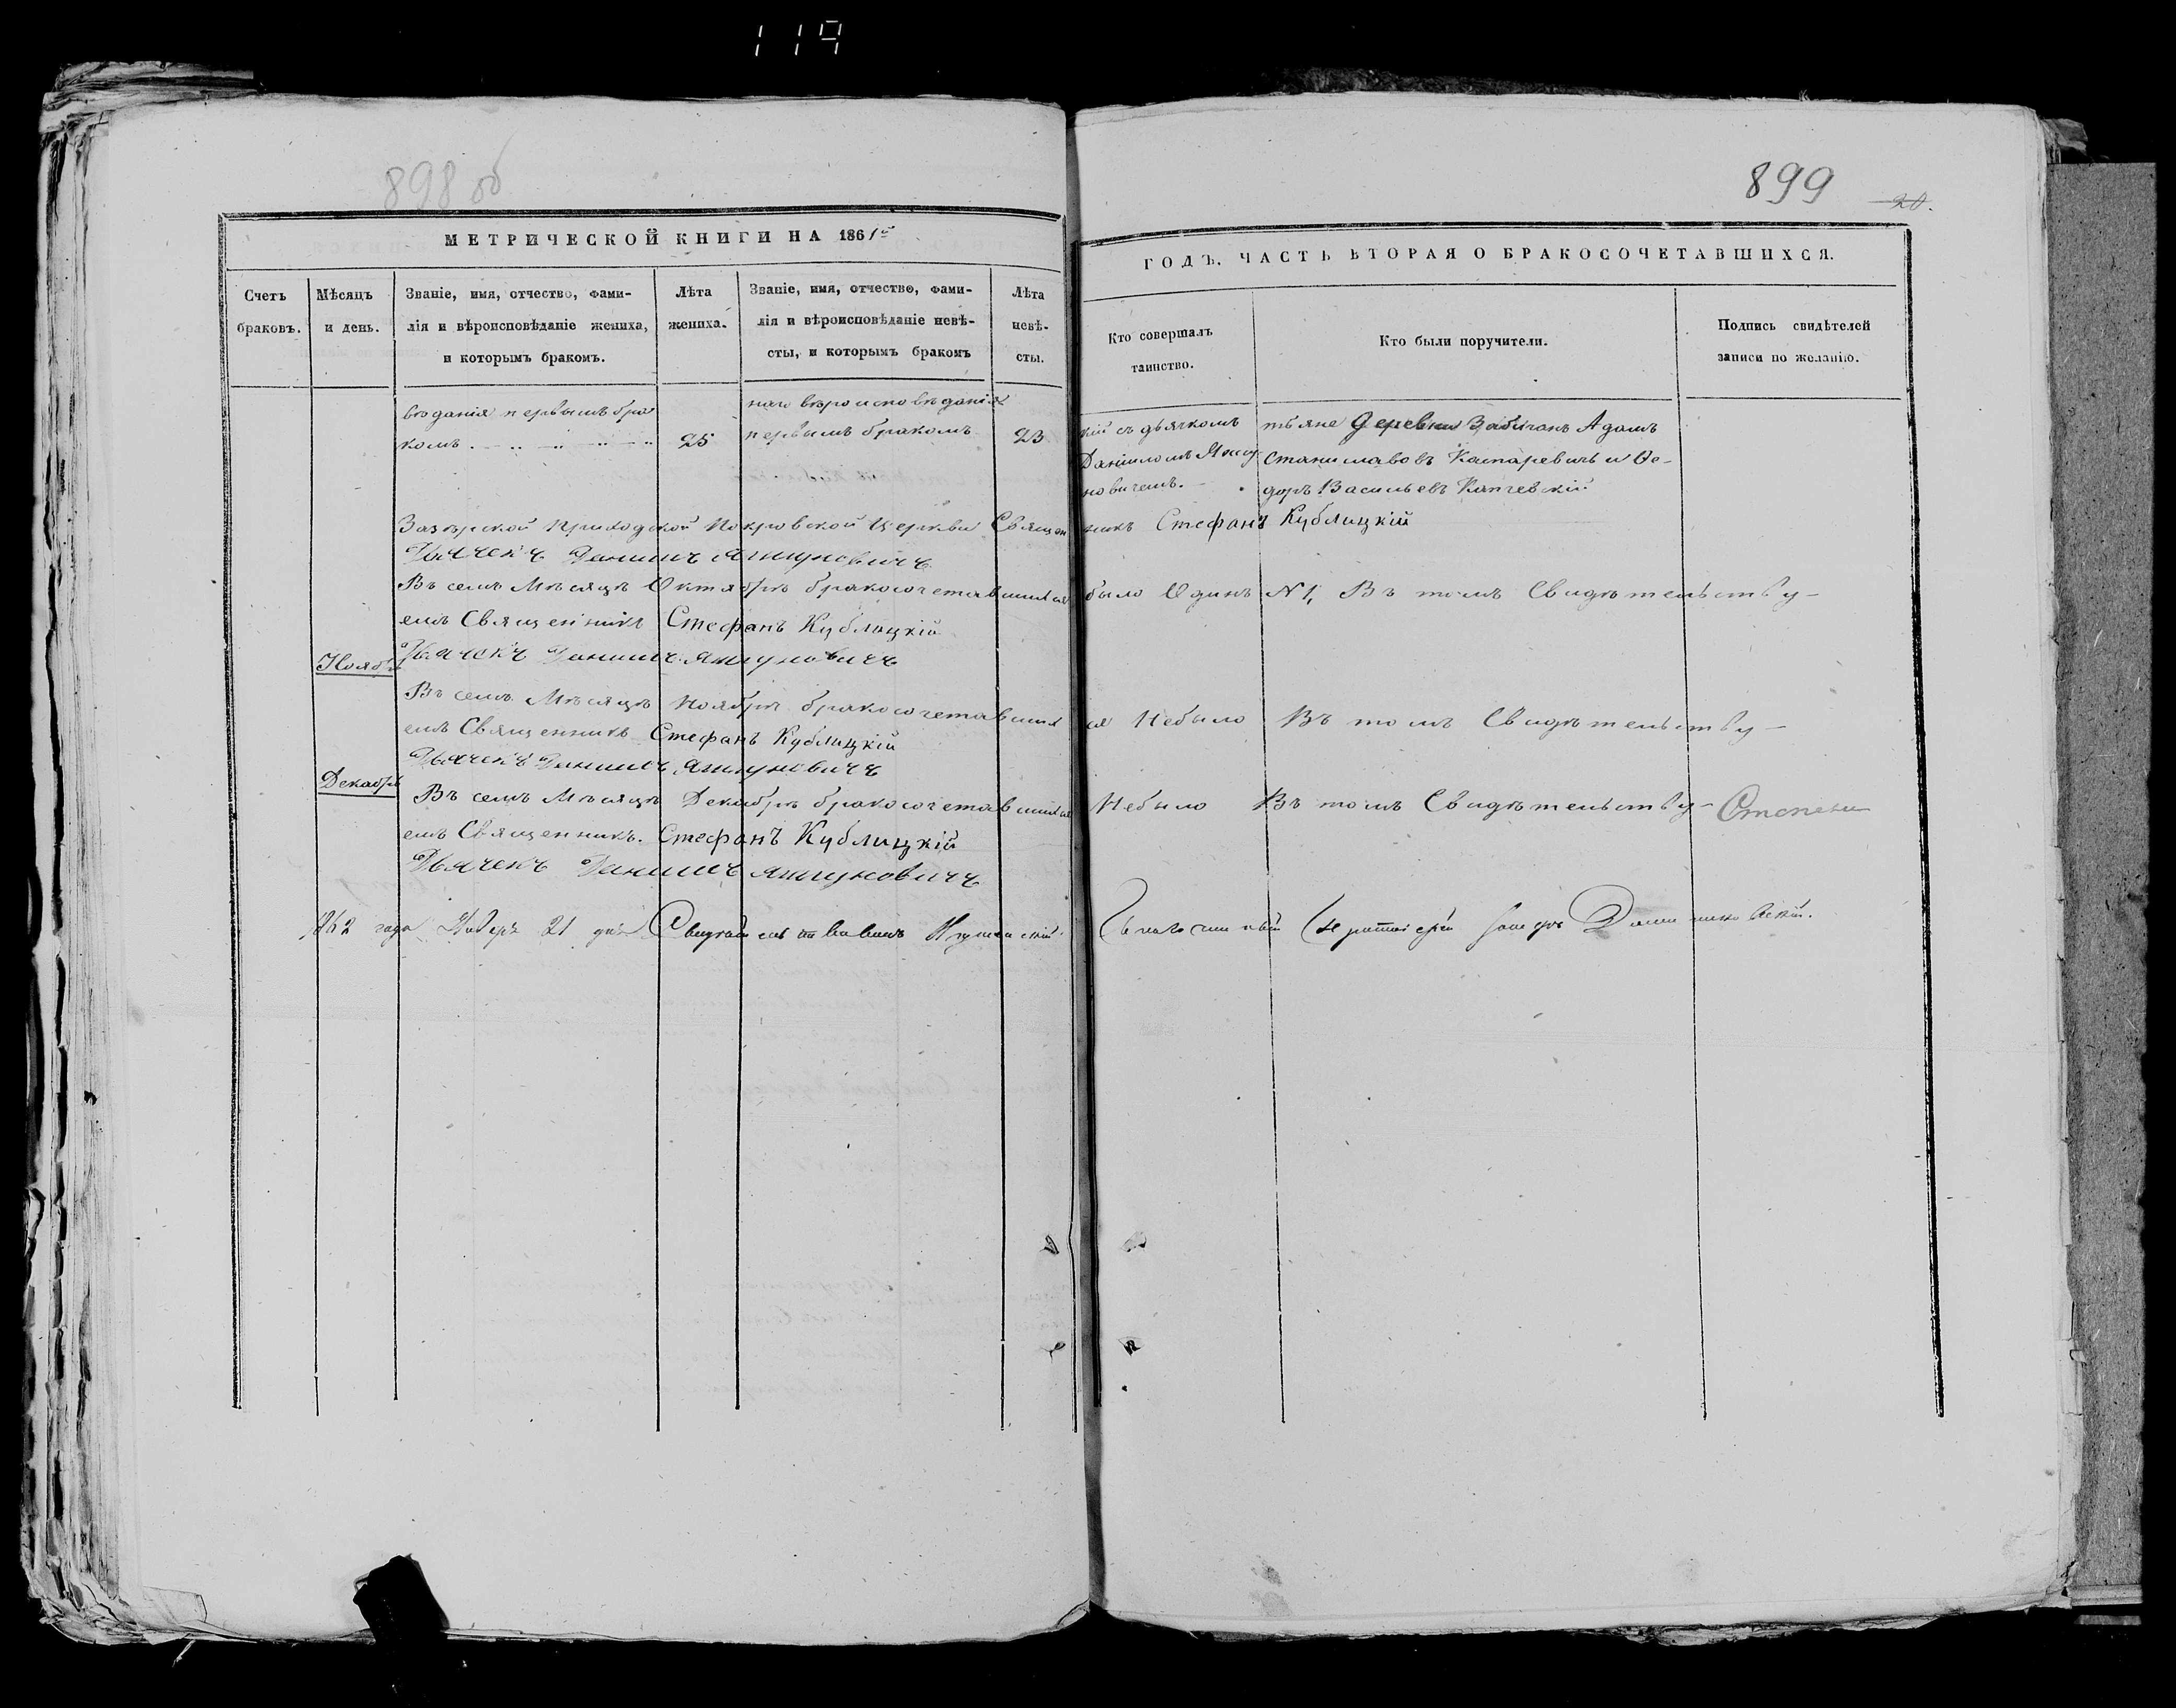 119
898 об
899
20.
МЕТРИЧЕСКОЙ КНИГИ НА 1861й
ГОДЪ. ЧАСТЬ ВТОРАЯ О БРАКОСОЧЕТАВШИХСЯ.
Счетъ браковъ.
Мѣсяцъ и день.
Званіе, имя, отчество, фами-
лія и вѣроисповѣданіе жениха,
и которымъ бракомъ.
Лѣта жениха.
Званіе, имя, отчество, фами-
лія и вѣроисповѣданіе невѣ-
сты, и которымъ бракомъ
Лѣта невѣ-
сты.
Кто совершалъ
таинство.
Кто были поручители.
Подпись свидѣтелей
записи по желанію.
вѣданія первымъ бра
комъ 25
наго вѣроисповѣданія
первымъ бракомъ 23
кій съ дьячкомъ
Даніиломъ Ячну
новичемъ.
тьяне деревни Забичанъ Адамъ
Станиславовъ Каспаревичъ и Ѳе-
доръ Васильевъ Капчевскій
Зазерской приходской Покровской Церкви Священникъ Стефанъ Кублицкій
Дьячекъ Даниилъ
Въ семъ Мѣсяцѣ Октябрѣ бракосочетавшихся было Одинъ N 1, Въ томъ Свидѣтельству-
емъ Священникъ Стефанъ Кублицкій
Дьячекъ Даниилъ
Ноябрь
Въ семъ Мѣсяцѣ Ноябрѣ бракосочетавшихся Небыло Въ томъ Свидѣтельству-
емъ Священникъ Стефанъ Кублицкій
Дьячекъ Даниилъ
Декабрь
Въ семъ Мѣсяцѣ Декабрѣ бракосочетавшихся Небыло Въ томъ Свидѣтельству-
емъ Священникъ. Стефанъ Кублицкій
Дьячекъ Даниилъ
1862 года Января 21 дня Свидѣтельствовалъ
Благочинный